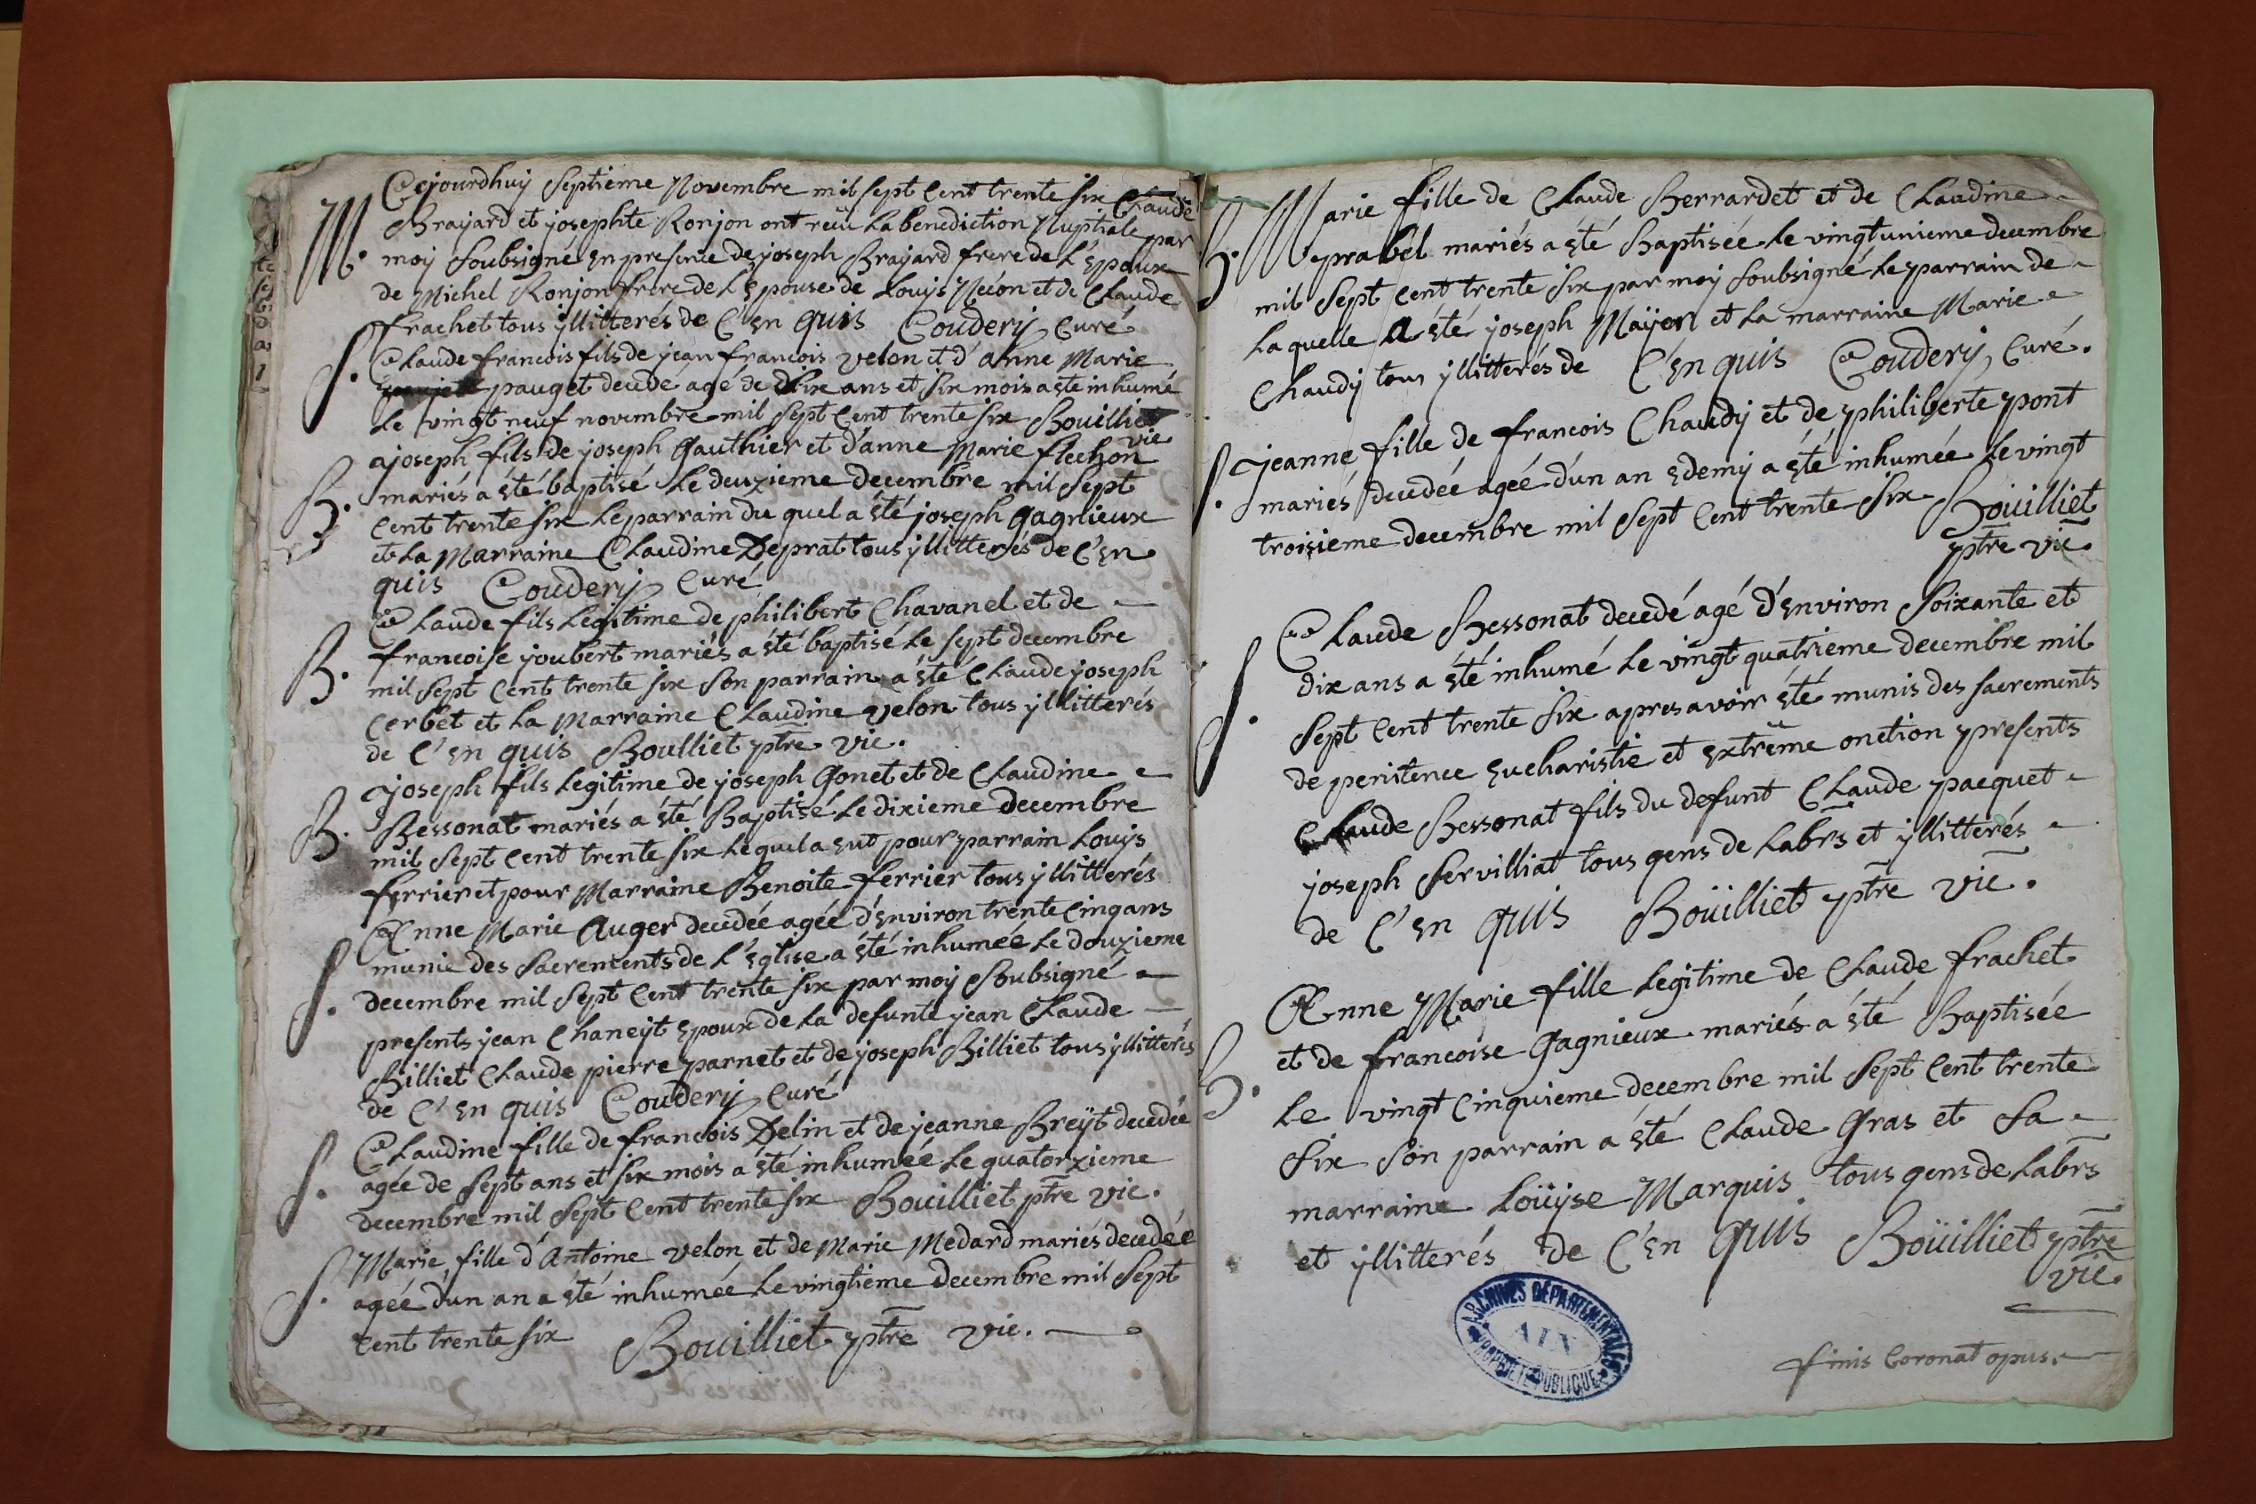 M. Cejourdhuy Septieme Novembre mil sept Cent trente six Claude
Brayard et josephte Ronjon ont reçu La benediction Nuptiale par
moy Soubsigné en presence de joseph Brayard frere de L'Epoux
de Michel Ronjon frere de L'Epouse de Louys Néron et de Claude
frachet tous yllitterés de C'en quis Coudery Curé
S. Claude francois fils de jean francois velon et d'anne Marie
pauget decedé agé de dix ans et six mois a esté inhumé
Le vingt neuf novembre mil Sept Cent trente six Bouilliet
vic
B. joseph fils de joseph Gauthier et d'anne Marie flechon
mariés a été baptisé Le deuzieme decembre mil Sept
Cent trente six Le parrain du quel a été joseph Gagnieux
et La Marraine Claudine Deprat tous yllitterés de C'en
quis Coudery Curé
B. Claude fils Legitime de philibert Chavanel et de
francoise joubert mariés a été baptisé Le sept decembre
mil Sept Cent trente six Son parrain a été Claude joseph
Cerbet et La Marraine Claudine velon tous yllitterés
de C'en quis Boulliet ptre vic.
B. joseph fils Legitime de joseph Gonet et de Claudine
Bessonat mariés a été Baptisé Le dixieme decembre
mil Sept Cent trente six Lequel a eut pour parrain Louys
ferrier et pour Marraine Benoite ferrier tous yllitterés
S. Anne Marie Auger decedée agée d'Environ trente Cinq ans
munie des Sacrements de L'Eglise a été inhumée Le douzieme
decembre mil Sept Cent trente six par moy Soubsigné
presents jean Chaneyt Epoux de La defunte jean Claude
Billiet Claude pierre parnet et de joseph Billiet tous yllitterés
de C'en quis Coudery Curé
S. Claudine fille de francois Delin et de jeanne Breyt decedée
agée de Sept ans et six mois a été inhumée Le quatorzieme
decembre mil Sept Cent trente six Bouilliet ptre vic.
S. Marie fille d'Antoine velon et de Marie Medard mariés decedée
agée d'un an a été inhumée Le vingtieme decembre mil Sept
Cent trente six Bouilliet ptre vic.
B. Marie fille de Claude Berrardet et de Claudine
veprabel mariés a été Baptisée Le vingtunieme decembre
mil Sept Cent trente Six par moy Soubsigné Le parrain de
La quelle A été joseph Mayen et La marraine Marie
Chaudy tous yllitterés de C'en quis Coudery Curé.
S. jeanne fille de francois Chaudy et de philiberte pont
mariés decedée agée d'un an edemy a été inhumée Le vingt
troisieme decembre mil Sept Cent trente Six Bouilliet
ptre vic.
S. Claude Bessonat decedé agé d'Environ Soixante et
dix ans a été inhumé Le vingt quatrieme decembre mil
Sept Cent trente Six apres avoir été munis des Sacrements
de penitence Eucharistie et Extrême onction presents
Claude Bessonat fils du defunt Claude pacquet
joseph Servilliat tous gens de Labrs et yllitterés
de C'en quis Boüilliet ptre vic.
B. Anne Marie fille Legitime de Claude frachet
et de francoise Gagnieux mariés a été Baptisée
Le vingt Cinquieme decembre mil Sept Cent trente
Six Son parrain a été Claude Gras et Sa
marraine Loüyse Marquis tous gens de Labrs
et yllitterés de C'en quis Boüilliet ptre
vic.
ARCHIVES DÉPARTEMENTALES
AIN
PROPRIÉTÉ PUBLIQUE
finis Coronat opus